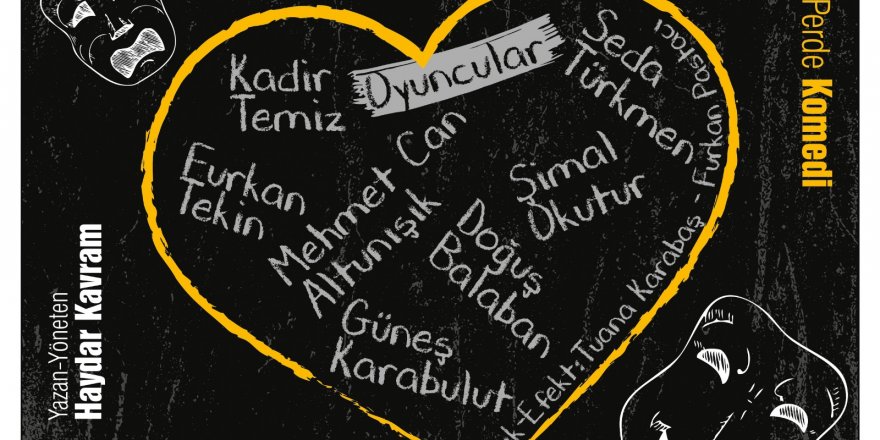 Oyuncular
Kadir
Temiz
Seda
Türkmen
Furkan
Tekin
Mehmet Can
Altunışık
Şimal
Okutur
Doğuş
Balaban
Güneş
Karabulut
Efekt: Tuana Karabaş - Furkan Pastacı
Yazan-Yöneten
Haydar Kavram
Perde Komedi